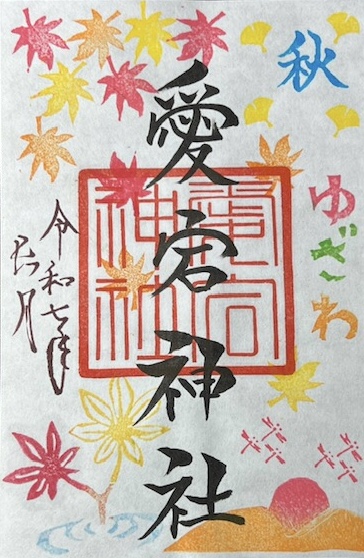 秋
ゆざわ
愛宕神社
愛宕
神社
令和七年
長月